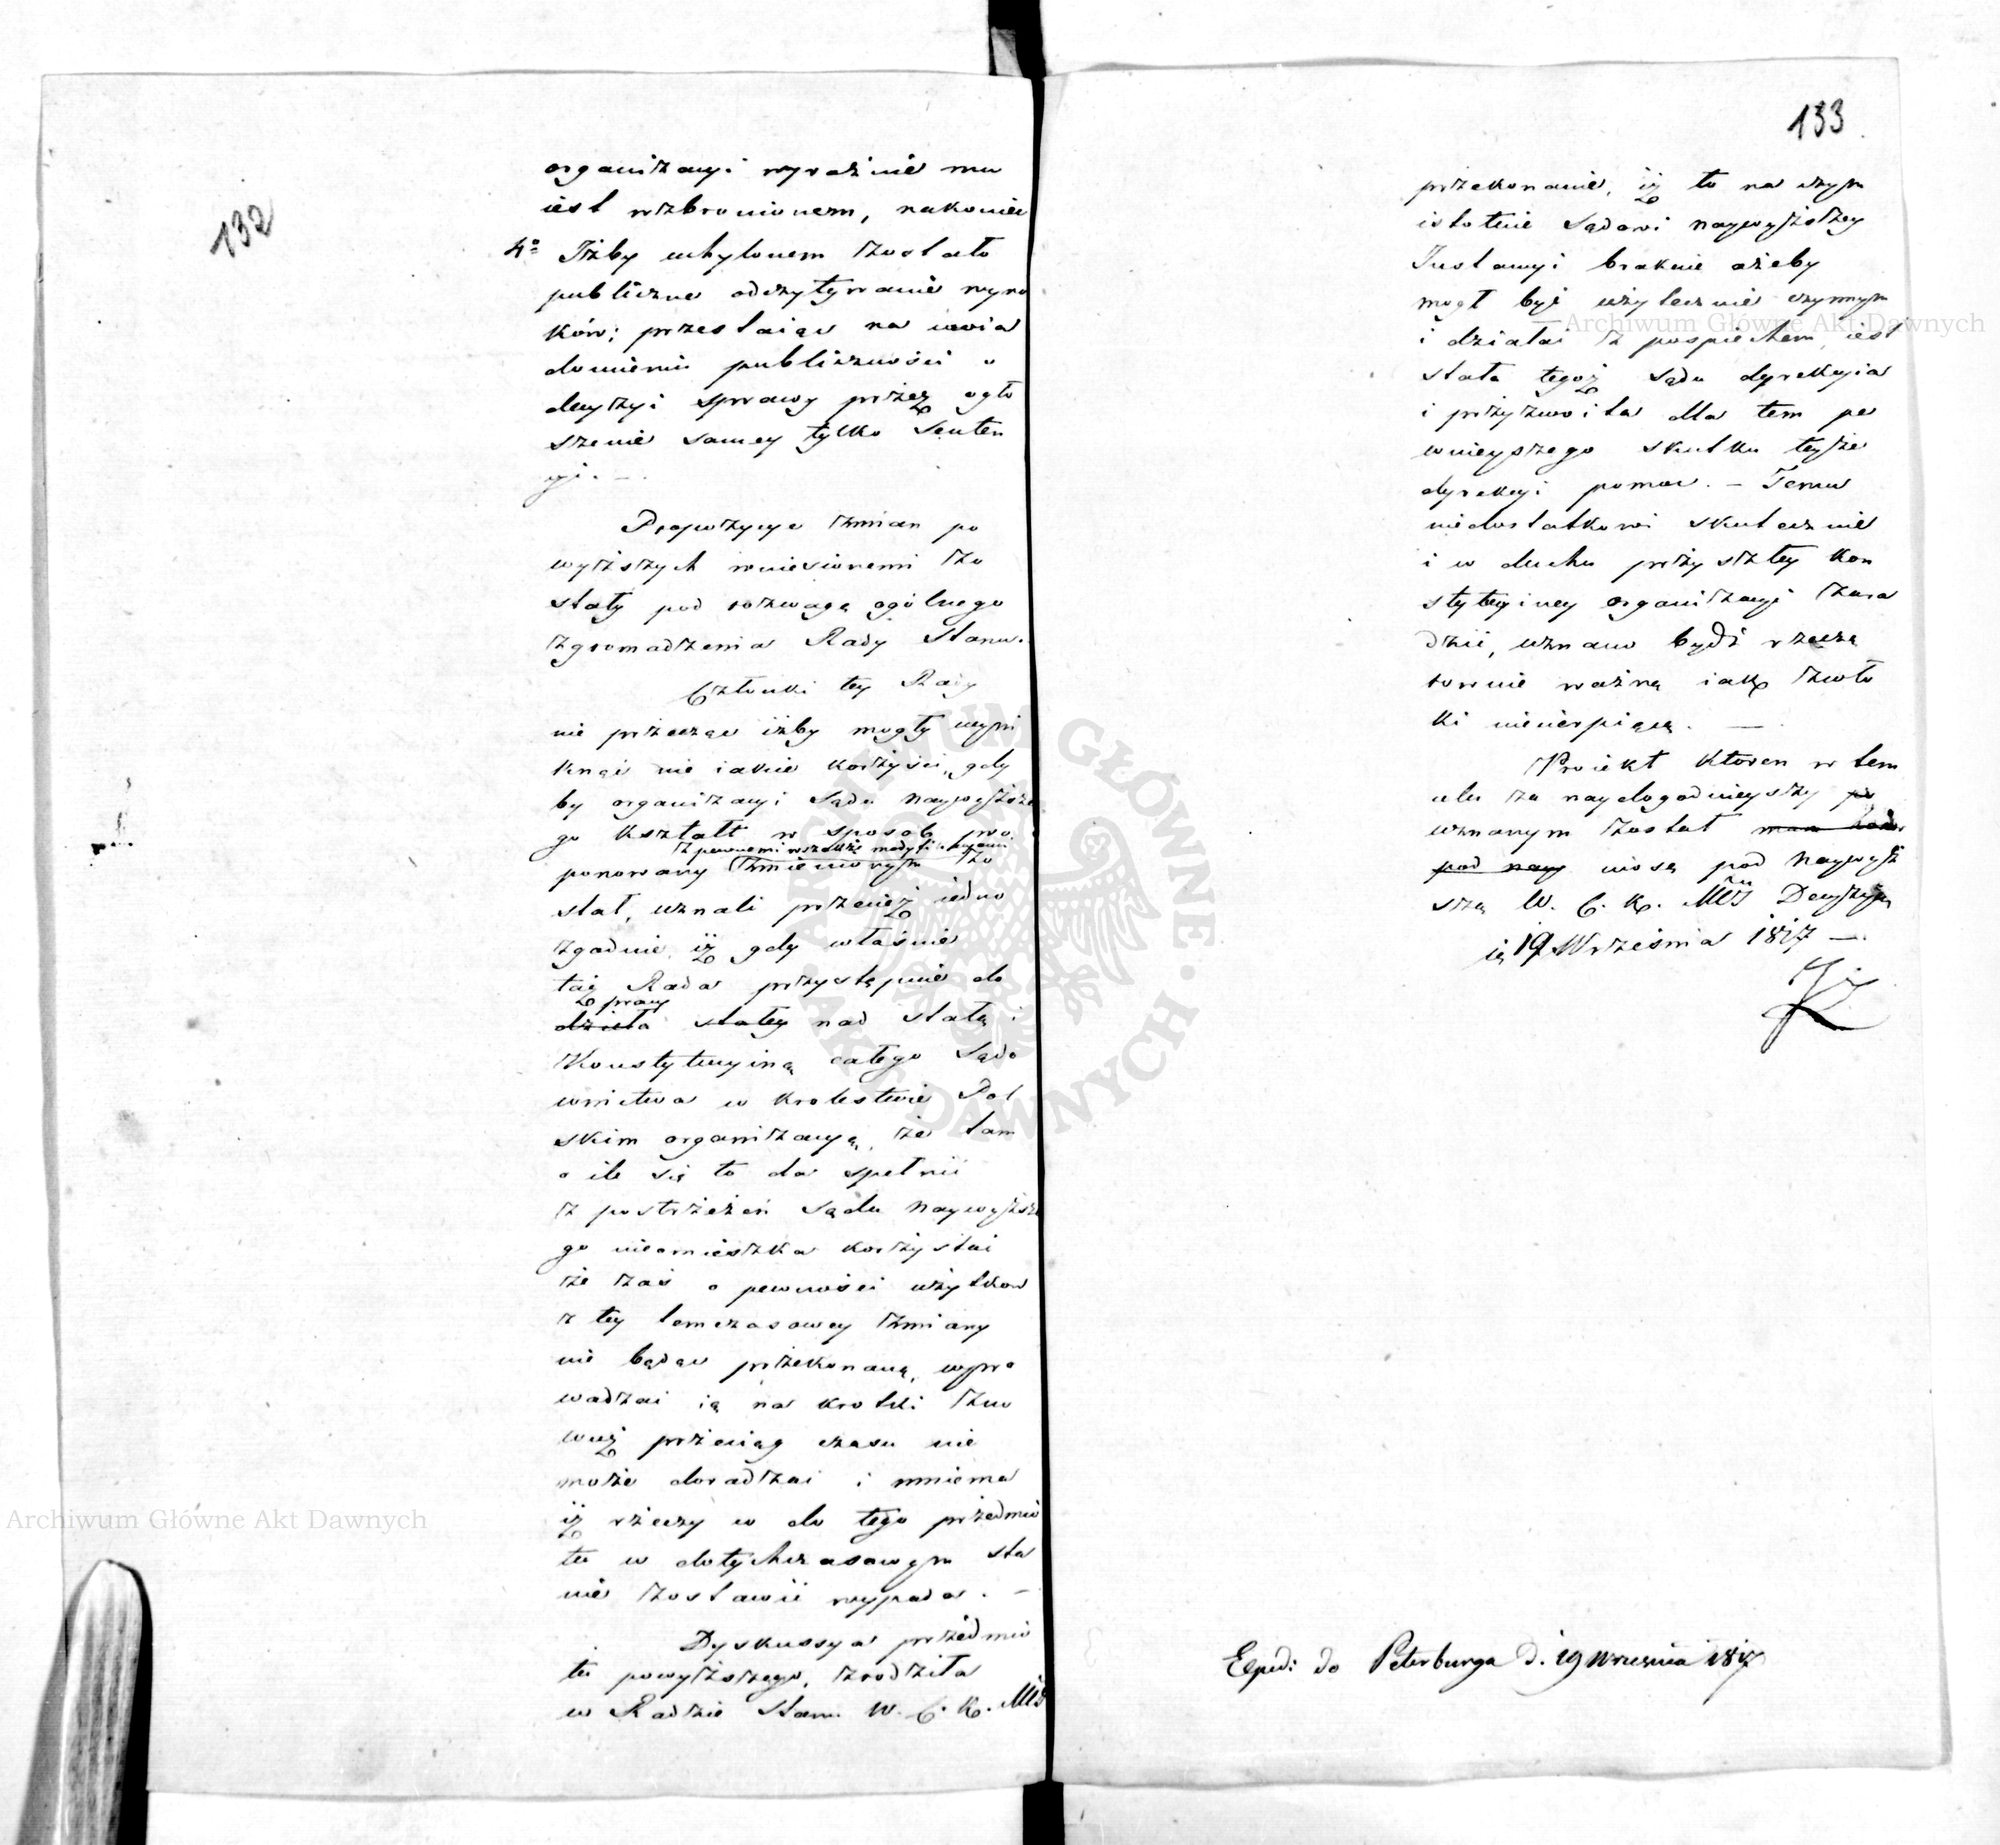 132
organizacyi wyraźnie mu
iest wzbronionem, nakoniec
4º Iżby uchylonem zostało
publiczne odczytywanie wyro
ków; przestaiąc na uwia
domieniu publiczności o
decyzyi sprawy przez ogło
szenie samey tylko Senten
cyi. —
Propozycye zmian po
wyższych wniesionemi zo
stały pod rozwagę ogólnego
zgromadzenia Rady Stanu.
Członki tey Rady
nie przecząc iżby mogły wyni
knąć nie iakie korzyści, gdy
by organizacyi Sądu Naywyższe
go kształt w sposób pro
z pewnemi wszakże modyfikacyami
ponowany zmienionym zo
stał, uznali przecież iedno
zgodnie, iż gdy właśnie
taż Rada przystąpnie do
pracy
dzieła stałey nad stałą i
Konstytucyiną całego Sądo
wnictwa w Krolestwie Pol
skim organizacyą, że tam
o ile się to da spełnić
z postrzeżeń Sądu Naywyższe
go nieomieszka korzystać
że zaś o pewności użytkow
z tey temczasowey zmiany
nie będąc przekonaną, wypro
wadzać ią na krotki zno
wuż przeciąg czasu nie
może doradzać i mniema
iż rzeczy w do tego przedmio
tu w dotychczasowym sta
nie zostawić wypada. —
Dyskussya przedmio
tu powyższego, zrodziła
w Radzie Stanu W. C. K. Mći
133
przekonanie, iż to na czym
istotnie Sądowi naywyższey
Instancyi braknie ażeby
mogł być użytecznie czynnym
i działać z pospiechem, iest
stała tegoż Sądu dyrekcyia
i przyzwoita dla tem pe
wnieyszego skutku teyże
dyrekcyi pomoc. — Temu
niedostatkowi skutecznie
i w duchu przyszłey kon
stytucyiney organizacyi zara
dzić, uznano bydź rzeczą
rownie ważną iak zwło
ki niecierpiącą. —
Proiekt ktoren w tem
celu za naydogodnieyszy po
uznanym został
pod nay niosą pod Naywyż
szą W. C. K. Mći Decyzyą
19 Września 1817 —.
Exped: do Peterburga d. 19 Wrzesnia 1817